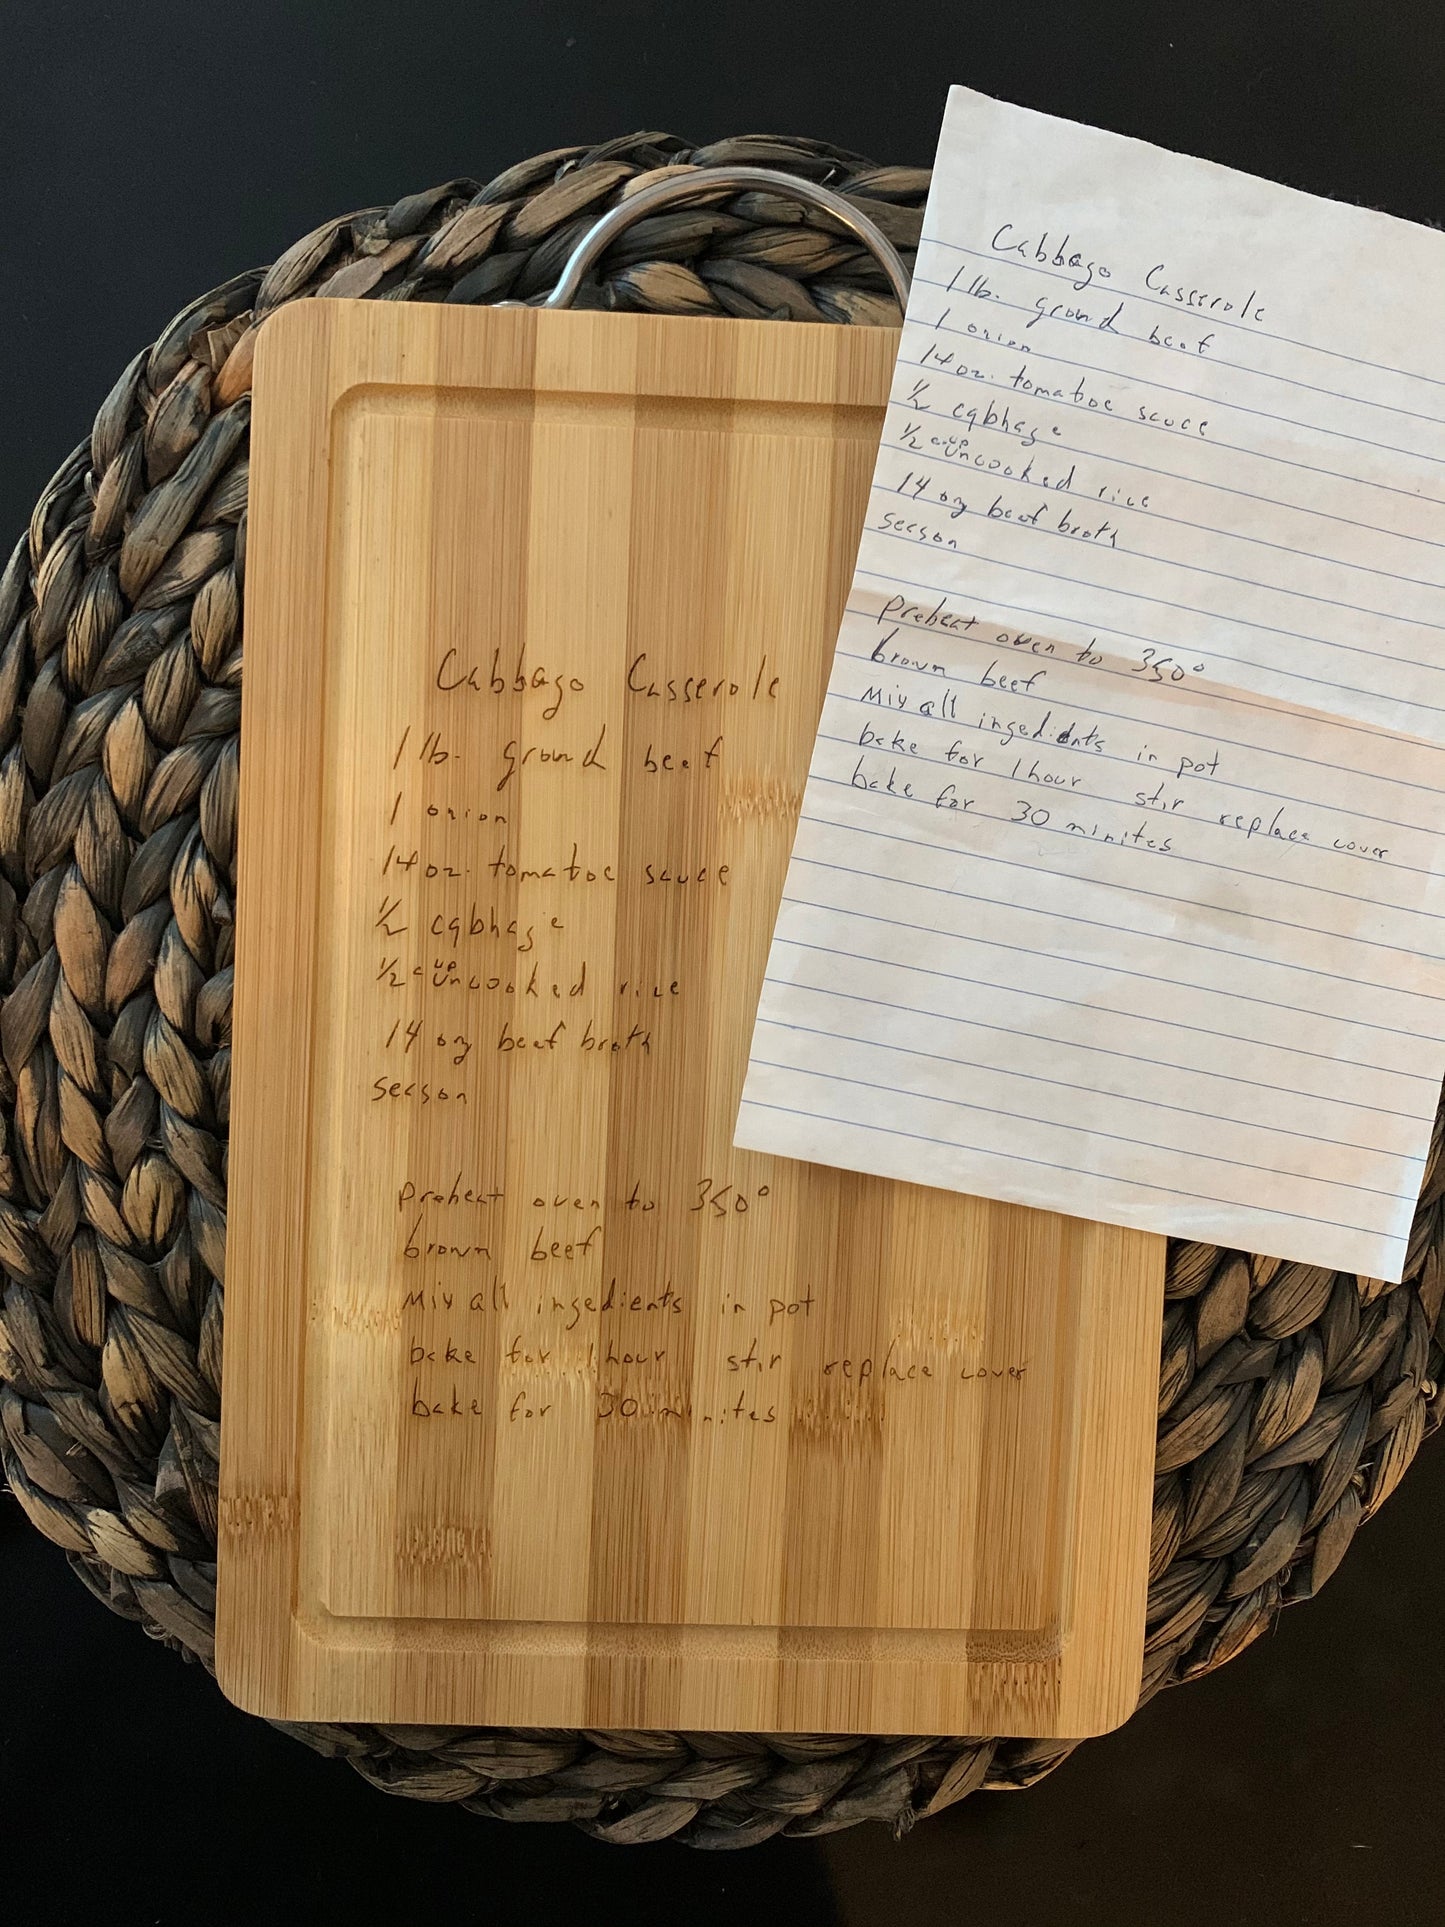 Cabbago Casserole
1 lb. ground beef
1 onion
14 oz. tomatoe sauce
1/2 cabbage
1/2 cup uncooked rice
14 oz beef broth
season
Preheat oven to 350°
brown beef
Mix all ingedients in pot
bake for 1 hour stir replace cover
bake for 30 minites
Cabbago Casserole
1 lb. ground beef
1 onion
14 oz. tomatoe sauce
1/2 cabbage
1/2 cup uncooked rice
14 oz beef broth
season
Preheat oven to 350°
brown beef
Mix all ingedients in pot
bake for 1 hour stir replace cover
bake for 30 minites